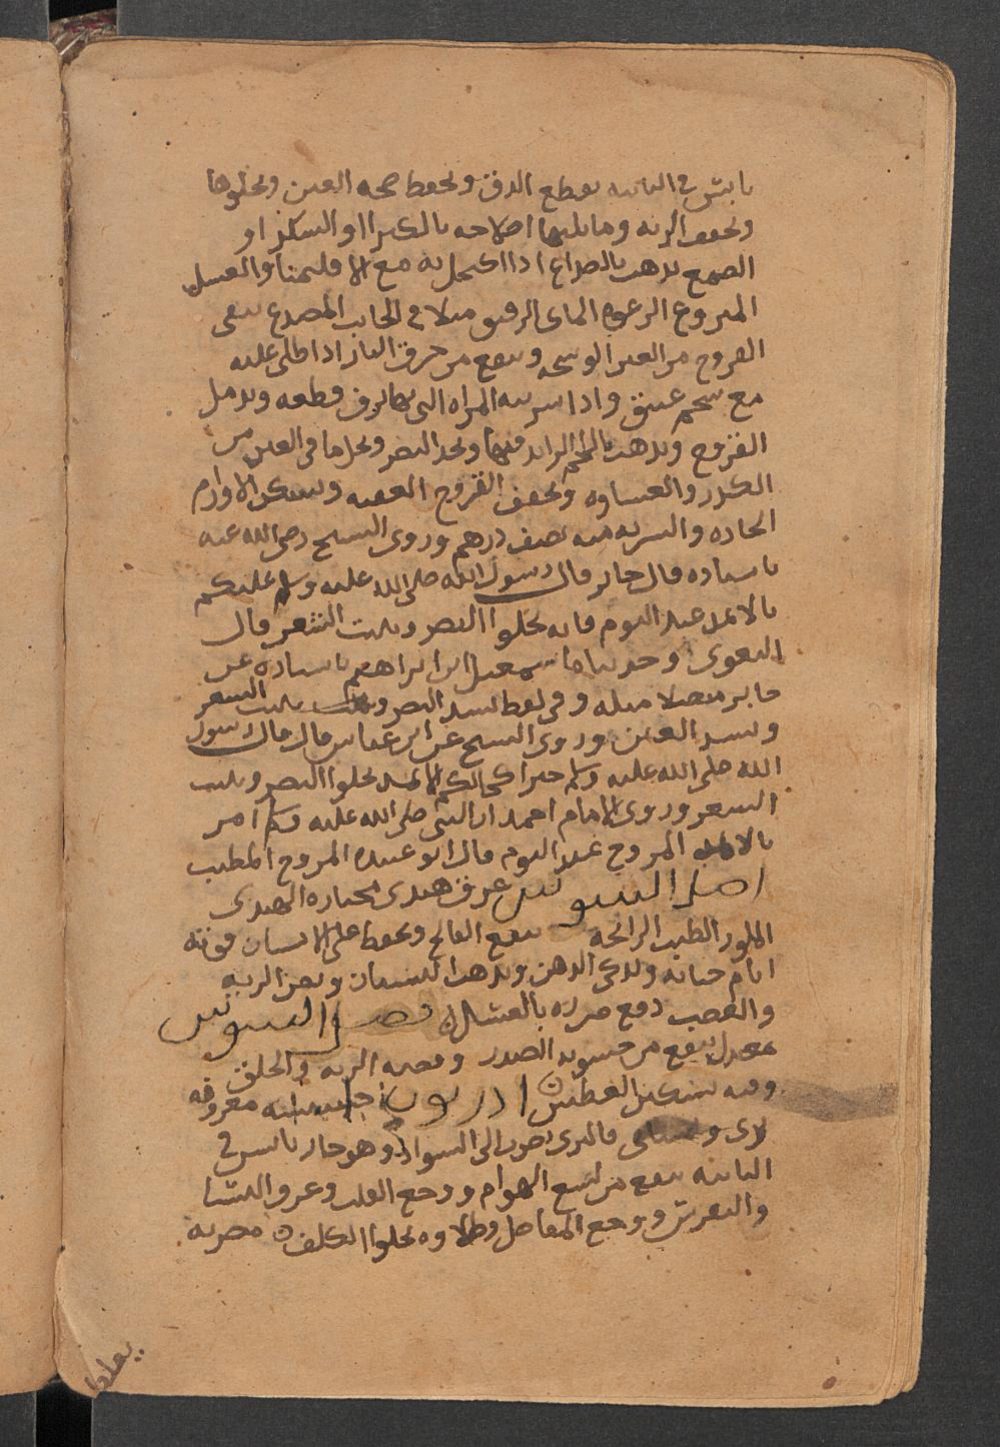 يابس في الثانيه يقطع الدم ويحفظ صحه العين ويجلوها
ويجفف الريه وما يليها اصلاحه بالكثيرا او السكر او
الصمغ يذهب بالصداع اذا اكتحل به مع الاقليميا والعسل
المنزوع الرغوه المائى الرقيق ميلا في الجانب المصدع ينقى
القروح من العين الوسخه وينفع من حرق النار اذا طلى عليه
مع شحم عتيق واذا شربته المراه التى بها نزف قطعه ويدمل
القروح ويذهب باللحم الزايد فيها ويحد البصر ويحل ما في العين من
الكدر والغشاوه ويجفف القروح العفنه ويسكن الاورام
الحاده والشربه منه نصف درهم وروى الشيخ رضى الله عنه
باسناده قال جابر قال رسول الله صلى الله عليه وسلم عليكم
بالاثمد عند النوم فانه يجلوا البصر وينبت الشعر قال
البغوى وحدثناها سمعيل ابن ابراهيم باسناده عن
جابر متصلا مثله وفي لفظ يشد البصر وينبت الشعر
ويشد العين وروى الشيخ عن ابن عباس قال قال رسول
الله صلى الله عليه وسلم خير اكحالكم الاثمد يجلوا البصر وينبت
الشعر وروى الامام احمد ان النبى صلى الله عليه وسلم امر
بالاثمد المروح عند النوم قال ابو عبيده المروح المطيب
اصل السوسن عرق هندى مختاره الهندى
الملون الطيب الرائحه ينفع الفالج ويحفظ على الانسان قوته
ايام حياته ويذكى الذهن ويذهب النسيان ويضر الريه
والعصب دفع ضرره بالعسل اصل السوس
معتدل ينفع من خشونه الصدر وقصبه الريه والحلق
وفيه تسكين العطش اذريون حشيشه معروفه
برى وبستانى فالبرى يضرب الى السواد وهو حار يابس في
الثانيه ينفع من لسع الهوام ووجع القلب وعرق النسا
والنقرس ووجع المفاصل وطلاوه يجلوا الكلف مضر به